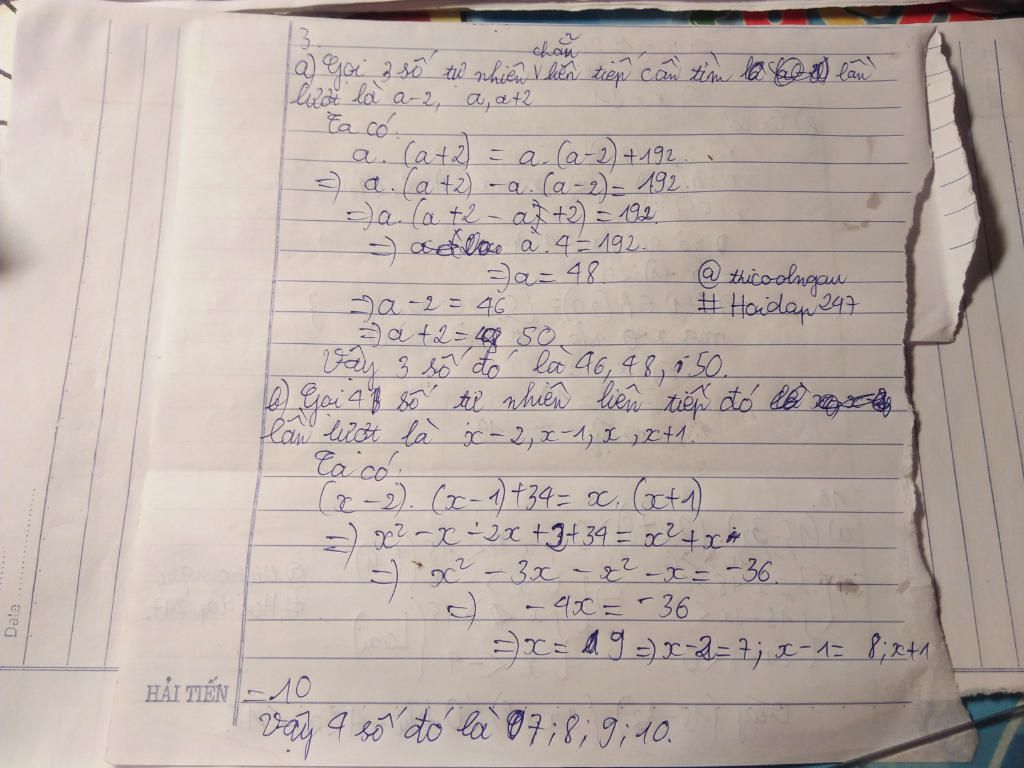 3.
a) Gọi 3 số tự nhiên chẵn liên tiếp cần tìm lần
lượt là a-2, a, a+2
Ta có:
a. (a+2) = a. (a-2) + 192.
=> a. (a+2) - a. (a-2) = 192.
=> a. (a+2 - a + 2) = 192.
=> a. 4 = 192.
=> a = 48.
@thicoolngau
=> a - 2 = 46
#Hoidap247
=> a + 2 = 50.
Vậy 3 số đó là 46, 48, 50.
b) Gọi 4 số tự nhiên liên tiếp đó
lần lượt là x-2, x-1, x, x+1.
Ta có:
(x-2). (x-1) + 34 = x. (x+1)
=> x² - x - 2x + 2 + 34 = x² + x
=> x² - 3x - x² - x = -36.
=> -4x = -36
=> x = 9 => x-2 = 7; x-1 = 8; x+1
= 10
Vậy 4 số đó là 7; 8; 9; 10.
HẢI TIẾN
Date